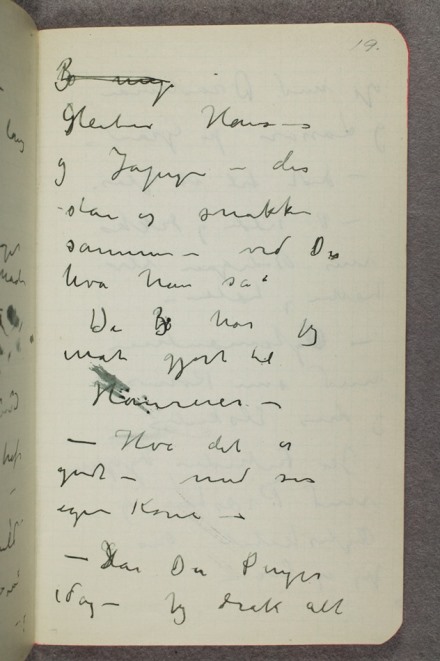 19.
Bo meg
Hans
og Jappe – de
står og snakker
sammen – ved De
hva han sa?
Da Bo har jeg
mat gjort til
– Hva det er
godt – med sin
egen Kone –
– Har Du Penger
idag – Jeg drak alt